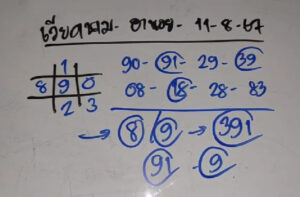 เวียดนาม - ฮานอย - 11-8-67
1
8 9 0
2 3
90 - 91 - 29 - 39
08 - 18 - 28 - 83
→ 8 / 9 → 391
91 - 9